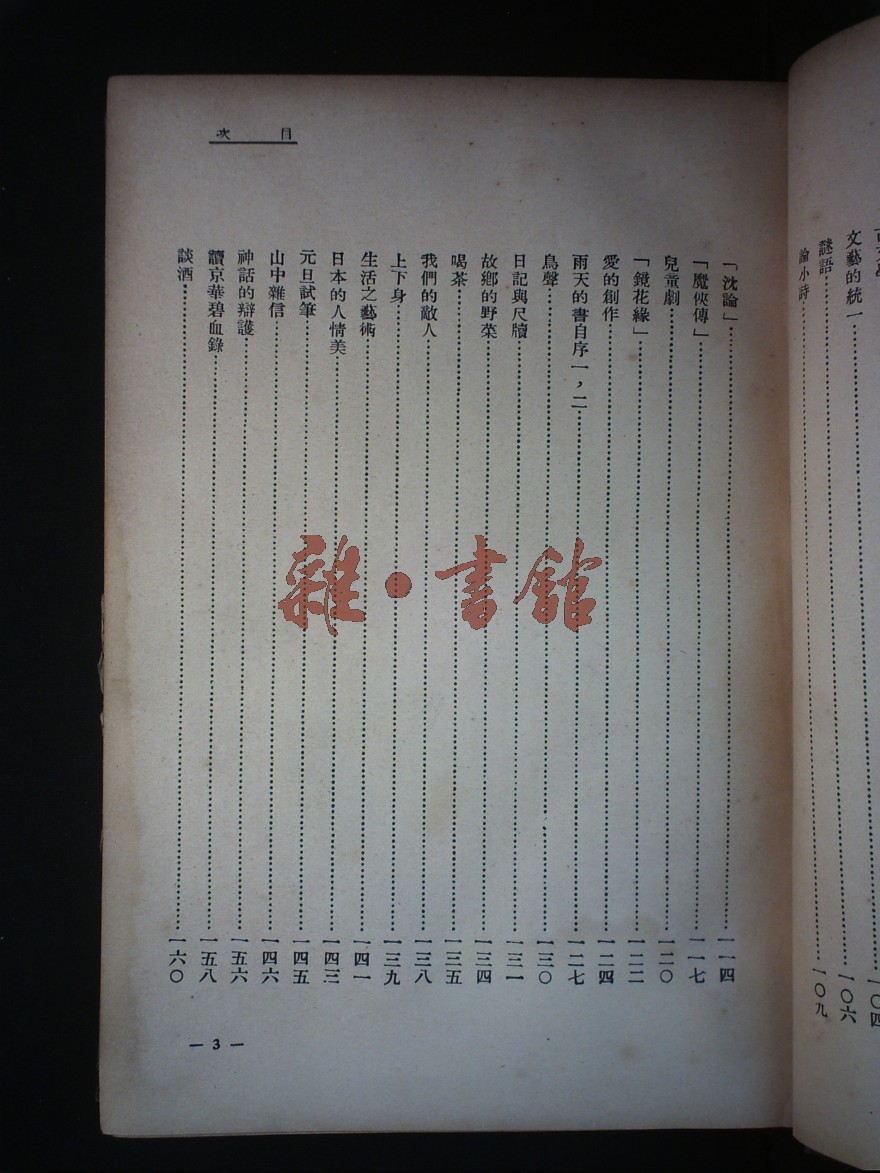 文藝的統一……一〇六
謎語
論小詩……一〇九
目次
「沈論」……一一四
「魔俠傳」……一一七
兒童劇……一二〇
「鏡花緣」……一二二
愛的創作……一二四
雨天的書自序一，二……一二七
鳥聲……一三〇
日記與尺牘……一三一
故鄉的野菜……一三四
喝茶……一三五
我們的敵人……一三八
上下身……一三九
生活之藝術……一四一
日本的人情美……一四三
元旦試筆……一四五
山中雜信……一四六
神話的辯護……一五六
讀京華碧血錄……一五八
談酒……一六〇
— 3 —
雜·書館